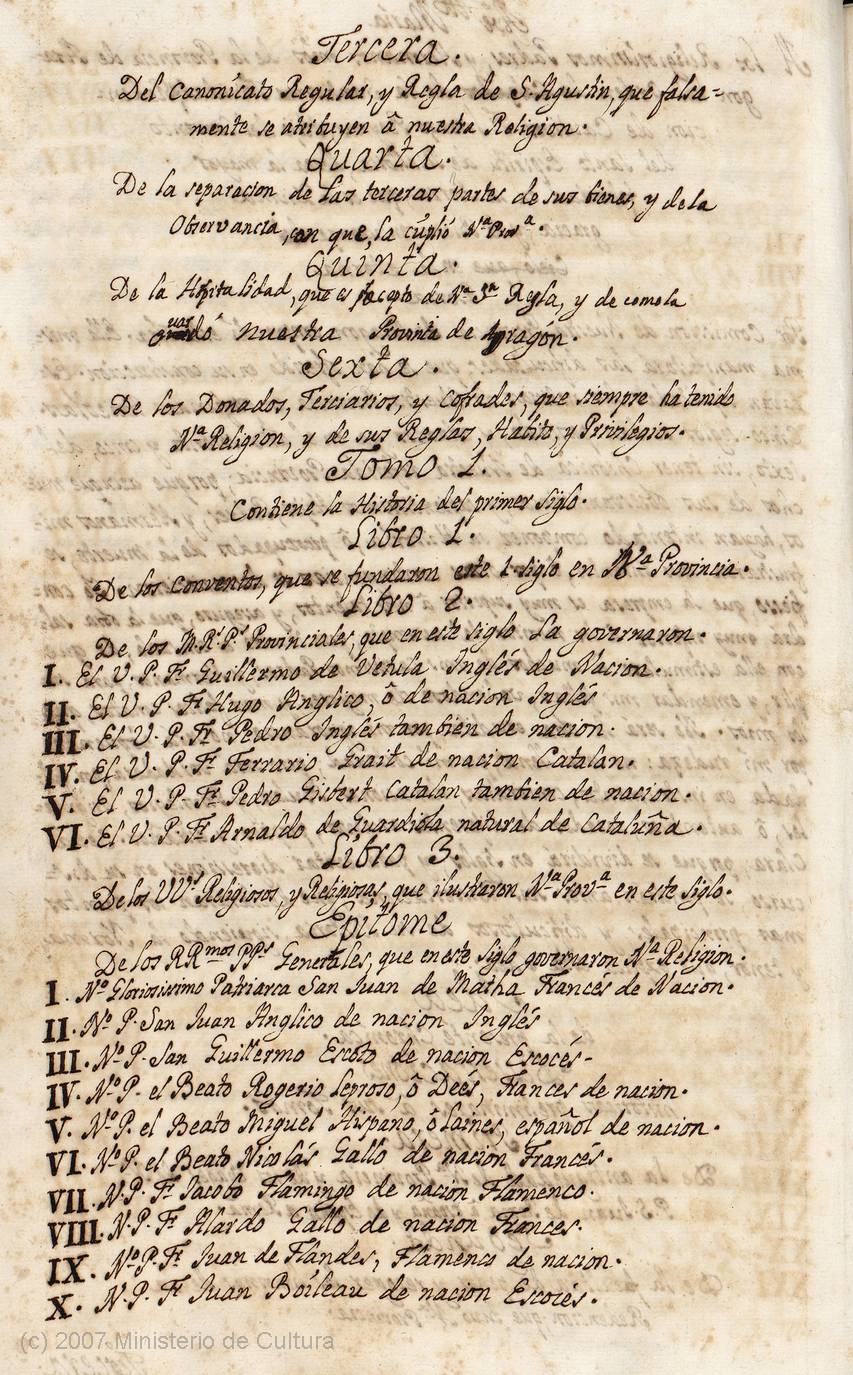 Tercera.
Del Canonicato Regular, y Regla de S. Agustin, que falsa=
mente se atribuyen â nuestra Religion.
Quarta.
De la separacion de las terceras partes de sus bienes, y de la
Observancia, con que, la cũplió Nª Provª.
Quinta.
De la Hospitalidad, que es precepto de Nª Sª Regla, y de como la
guardó nuestra Provincia de Aragón.
Sexta.
De los Donados, Terciarios, y Cofrades, que siempre ha tenido
Nª Religion, y de sus Reglas, Habito, y Privilegios.
Tomo 1.
Contiene la Historia del primer siglo.
Libro 1.
De los Conventos, que se fundaron este 1 siglo en Nª Provincia.
Libro 2.
De los M. Rˢ Pˢ Provinciales, que en este siglo la governaron.
I. El V. P. Fr. Guillermo de Vetula Inglés de Nacion.
II. El V. P. Fr. Hugo Anglico, ô de nacion Inglés
III. El V. P. Fr. Pedro Inglés tambien de nacion.
IV. El V. P. Fr. Ferrario Grait de nacion Catalan.
V. El V. P. Fr. Pedro Gisbert Catalan tambien de nacion.
VI. El V. P. Fr. Arnaldo de Guardiola natural de Cataluña.
Libro 3.
De los VVˢ Religiosos, y Religiosas, que ilustraron Nª Provª en este siglo.
Epitome
De los RRᵐᵒˢ PPˢ Generales, que en este siglo governaron Nª Religion.
I. Nº Gloriosissimo Patriarca San Juan de Matha Francés de Nacion.
II. Nº P. San Juan Anglico de nacion Inglés
III. Nº P. San Guillermo Escoto de nacion Escocés-
IV. Nº P. el Beato Rogerio Leproso, ô Deés, Frances de nacion.
V. Nº P. el Beato Miguel Hispano, ô Laines, español de nacion.
VI. Nº P. el Beato Nicolás Gallo de nacion Francés.
VII. N. P. Fr. Jacobo Flamingo de nacion Flamenco.
VIII. N. P. Fr. Alardo Gallo de nacion Frances.
IX. Nº P. Fr. Juan de Flandes, Flamenco de nacion.
X. N. P. Fr. Juan Boileau de nacion Escocés.
(c) 2007 Ministerio de Cultura